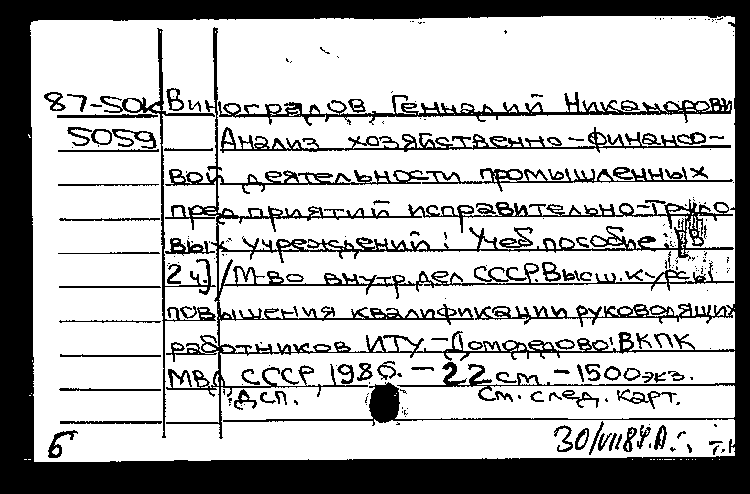 87-50к Виноградов, Геннадий Никанорови
5059 Анализ хозяйственно-финансо-
вой деятельности промышленных
предприятий исправительно-трудо-
вых учреждений: Учеб. пособие: [В
2 ч.] / М-во внутр. дел СССР. Высш. курсы
повышения квалификации руководящих
работников ИТУ. - Домодедово: ВКПК
МВД СССР, 1986. - 22 cm. - 1500 экз.
Дсп. См. след. карт.
Б 30/VII 87.